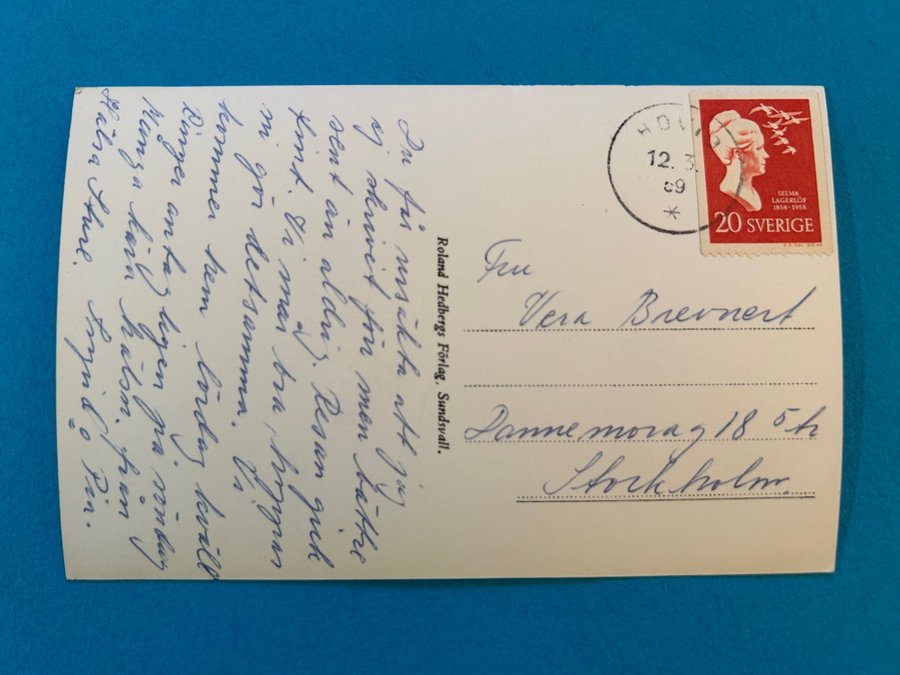 Du få ursäkta att jag
ej skrivit förr men bättre
sent än aldrig. Resan gick
fint. Vi mår bra, hoppas
ni gör detsamma. Vi
kommer hem lördag kväll
Ringer antagligen på söndag
Många kära hälsn. från
Hälsa Sture.
Roland Hedbergs Förlag, Sundsvall.
12. 3.
SELMA
LAGERLÖF
1858-1958
20 SVERIGE
Fru
Vera Brevnert
Dannemorag 18 5 tr
Stockholm